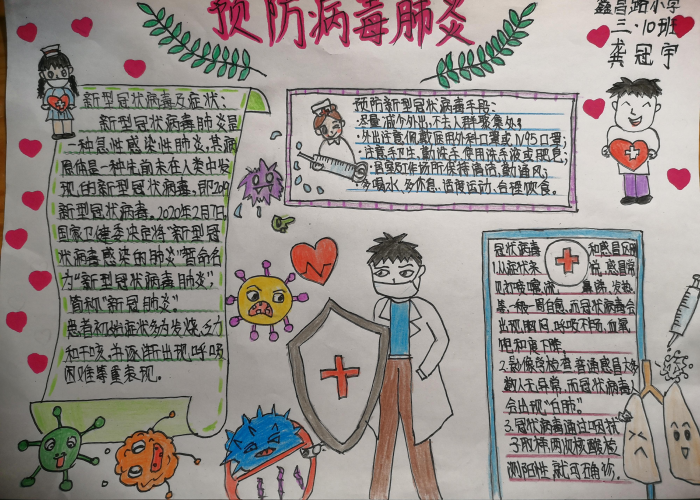 预防病毒肺炎
鑫昌路小学
三·10班
龚冠宇
新型冠状病毒及症状:
新型冠状病毒肺炎是
一种急性感染性肺炎,其病
原体是一种先前未在人类中发
现的新型冠状病毒,即2019
新型冠状病毒。2020年2月7日,
国家卫健委决定将"新型冠
状病毒感染的肺炎"暂命名
为"新型冠状病毒肺炎",
简称"新冠肺炎"。
患者初始症状多为发烧、乏力
和干咳,并逐渐出现呼吸
困难等重表现。
预防新型冠状病毒手段:
·尽量减少外出,不去人群聚集处;
·外出注意佩戴医用外科口罩或N95口罩;
·注意手卫生,勤洗手,使用洗手液或肥皂;
·居室及工作场所保持清洁,勤通风;
·多喝水,多休息,适度运动,合理饮食。
冠状病毒 和感冒区别
1.从症状来 ,感冒常
见打喷嚏、流 鼻涕、发热,
集一般一周自愈,而冠状病毒会
出现胸闷,呼吸不畅,血氧
饱和度下降。
2.影像学检查,普通感冒大多
数人无异常,而冠状病毒人
会出现"白肺"。
3.冠状病毒通过咽拭
子取样,两次核酸检
测阳性就可确诊。